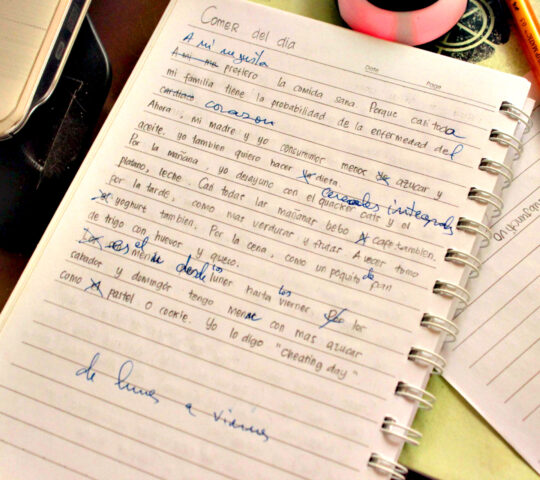 Comer del dia
Date Page
A mi me gusta
A mi me prefiero la comida sana. Porque casi toda
mi familia tiene la probabilidad de la enfermedad del
cardiaco corazon
Ahora, mi madre y yo consumimer menos azucar y
aceite. yo tambien quiero hacer dieta.
cereales integrales
Por la mañana, yo desayuno con el quacker oats y el
platano, leche. Casi todas las mañanas bebo cafe tambien.
Por la tarde, como mas verduras y frutas. A veces tomo
yoghurt tambien. Por la cena, como un poquito de pan
de trigo con huevos y queso.
es el menu desde los lunes hasta los viernes. los
sabados y domingos tengo menu con mas azucar
como pastel o cookie. Yo lo digo "cheating day"
de lunes a viernes